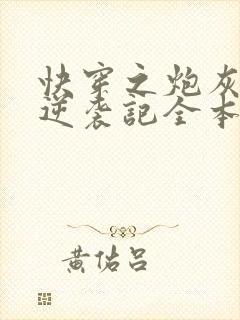 快穿之炮灰
逆袭記全本
黄佑吕